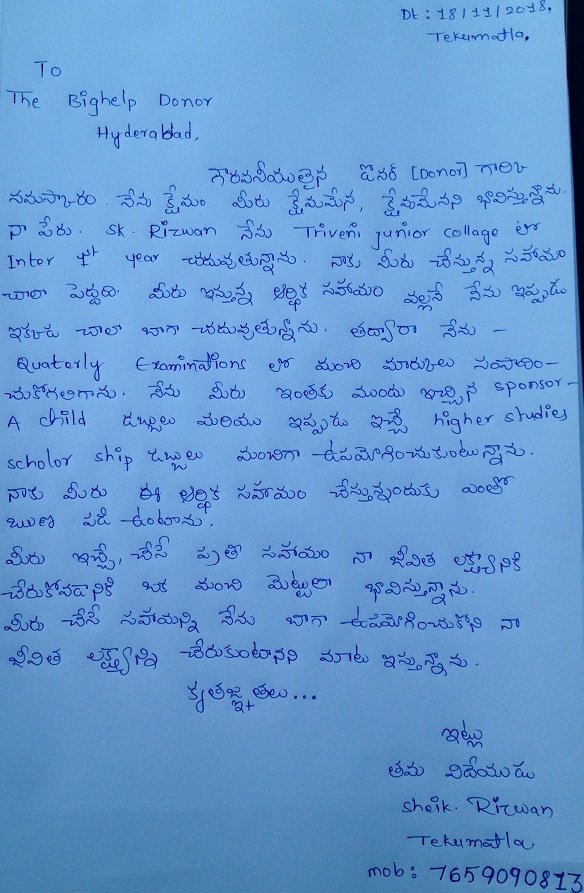 Dt : 18/11/2018,
Tekumatla,
To
The Bighelp Donor
Hyderabad,
గౌరవనీయులైన డొనర్ [Donor] గారికి
నమస్కారం. నేను క్షేమం మీరు క్షేమమేన, క్షేమమేనని భావిస్తున్నాను.
నా పేరు. SK. Rizwan నేను Triveni junior collage లో
Inter 1st year చదువుతున్నాను. నాకు మీరు చేస్తున్న సహాయం
చాలా పెద్దది. మీరు ఇస్తున్న ఆర్థిక సహాయం వల్లనే నేను ఇప్పుడు
ఇక్కడ చాలా బాగా చదువుతున్నాను. తద్వారా నేను -
Quaterly Examinations లో మంచి మార్కులు సంపాదిం-
చుకోగలిగాను. నేను మీరు ఇంతకు ముందు ఇచ్చిన sponsor-
A child డబ్బులు మరియు ఇప్పుడు ఇచ్చే higher studies
scholor ship డబ్బులు మంచిగా ఉపయోగించుకుంటున్నాను.
నాకు మీరు ఈ ఆర్థిక సహాయం చేస్తున్నందుకు ఎంతో
ఋణ పడి ఉంటాను.
మీరు ఇచ్చే, చేసే ప్రతి సహాయం నా జీవిత లక్ష్యానికి
చేరుకోవడానికి ఒక మంచి మెట్టులా భావిస్తున్నాను.
మీరు చేసే సహాయన్ని నేను బాగా ఉపయోగించుకొని నా
జీవిత లక్ష్యాన్ని చేరుకుంటానని మాట ఇస్తున్నాను.
కృతజ్ఞతలు...
ఇట్లు
తమ విదేయుడు
Sheik. Rizwan
Tekumatla
mob: 7659090813